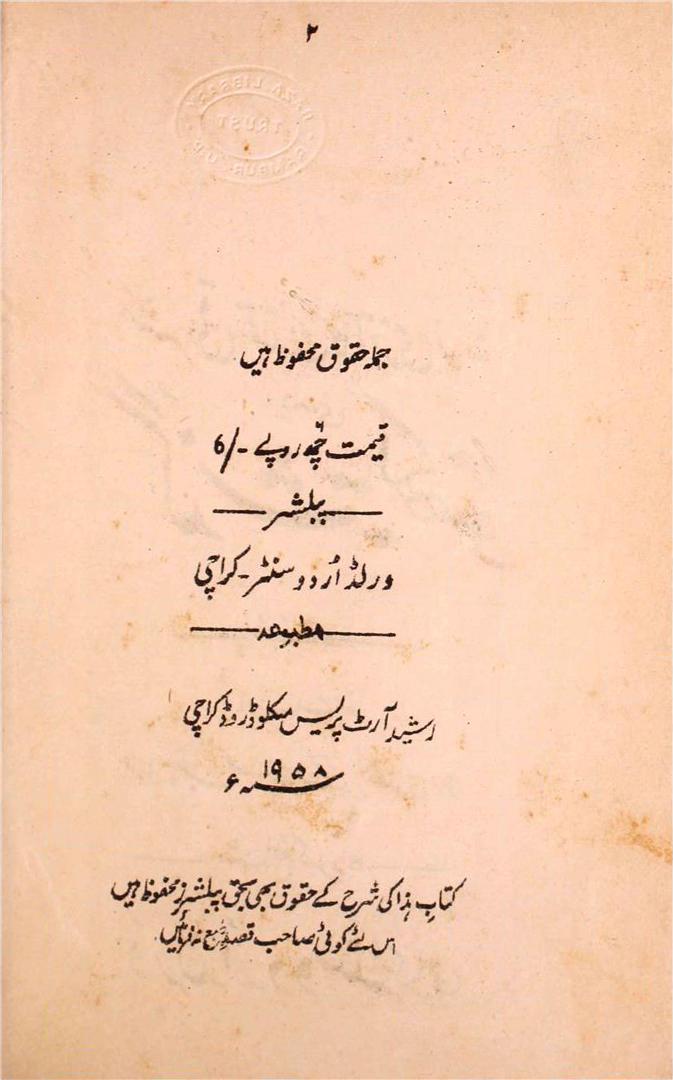 ۲
RAZA LIBRARY
TRUST
RAMPUR. U.P.
جملہ حقوق محفوظ ہیں
قیمت چھ روپے -/6
پبلشر
ورلڈ اُردو سنٹر - کراچی
مطبوعہ
رشید آرٹ پریس میکلوڈ روڈ کراچی
۱۹۵۸ء
کتابِ ہٰذا کی شرح کے حقوق بھی بحق پبلشرز محفوظ ہیں
اس لئے کوئی صاحب قصدِ طبع نہ فرمائیں.